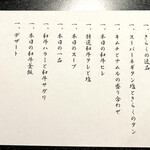 一、きらくの逸品
一、スーパーネギタン塩ときらくのタン
一、本日の和牛ヒレ
一、キムチとナムルの盛り合わせ
一、特選和牛タレと塩
一、本日のスープ
一、本日の一品
一、和牛ハラミと和牛サガリ
一、本日の和牛釜飯
一、デザート